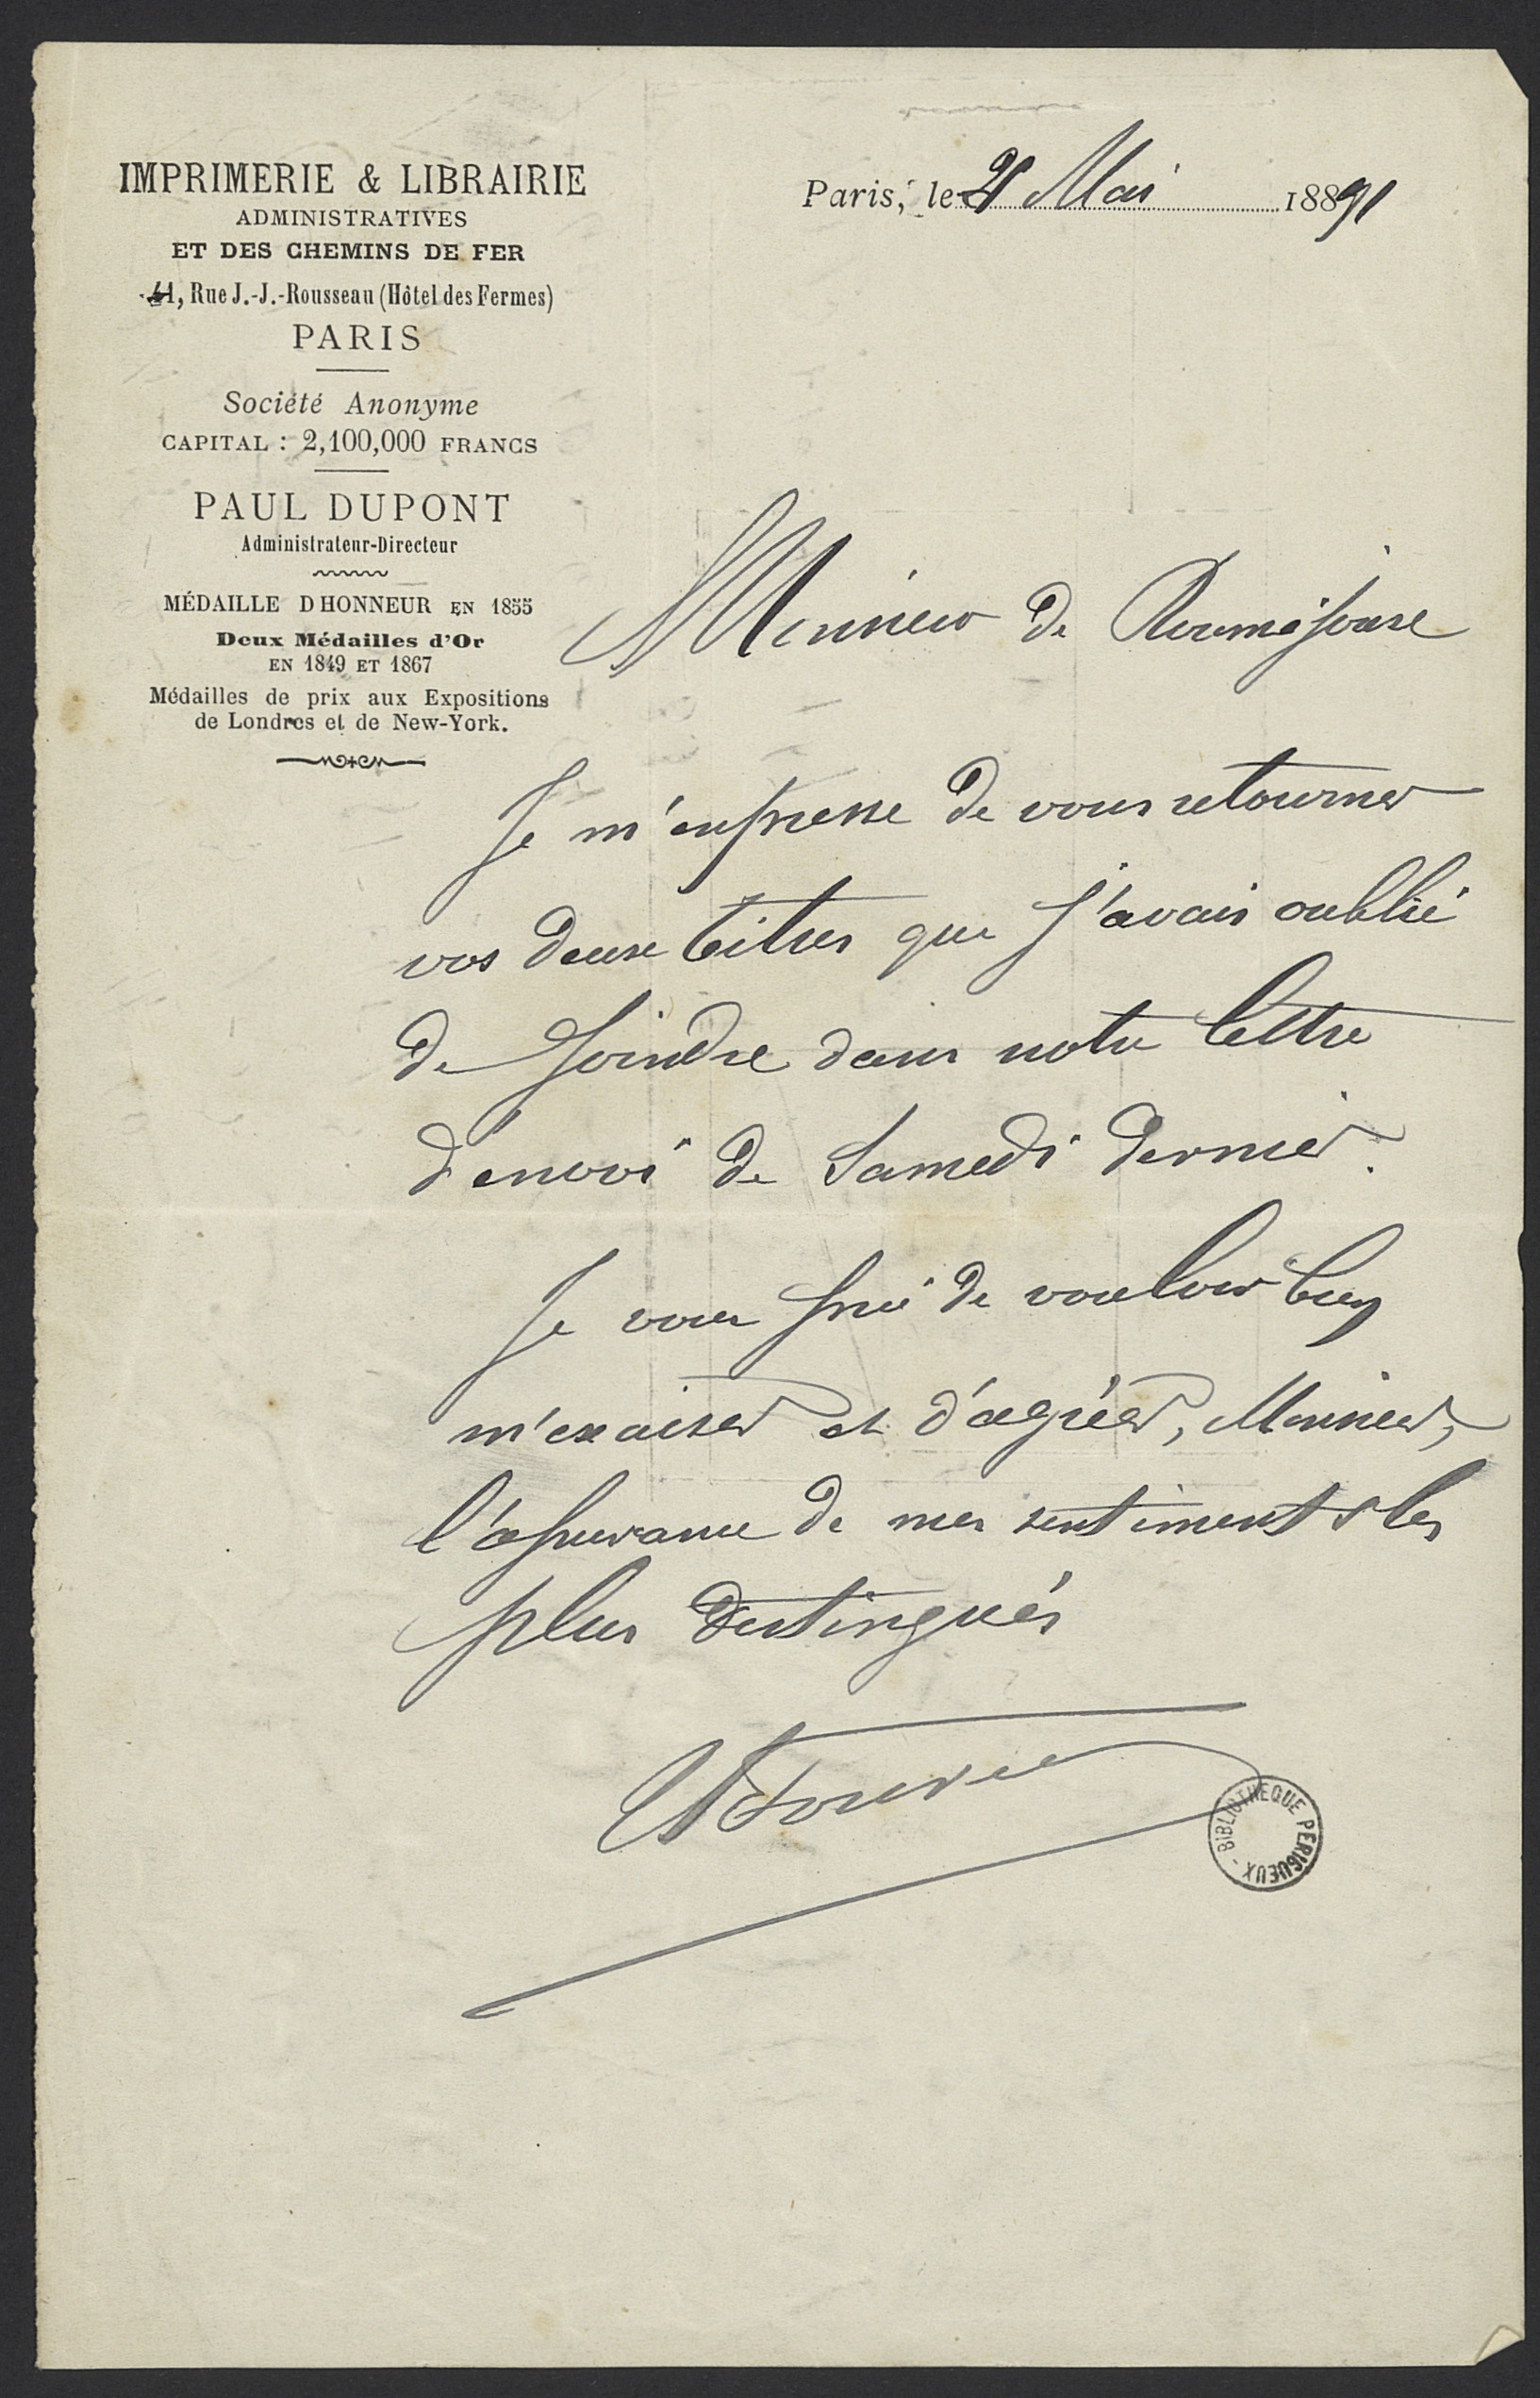 IMPRIMERIE & LIBRAIRIE
ADMINISTRATIVES
ET DES CHEMINS DE FER
41, Rue J.-J.-Rousseau (Hôtel des Fermes)
PARIS
Société Anonyme
CAPITAL : 2,100,000 FRANCS
PAUL DUPONT
Administrateur-Directeur
MÉDAILLE D'HONNEUR EN 1855
Deux Médailles d'Or
EN 1849 ET 1867
Médailles de prix aux Expositions
de Londres et de New-York.
Paris, le 21 Mai 1891
Monsieur de
Je m'empresse de vous retourner
vos deux titres que j'avais oublié
de joindre dans notre lettre
d'envoi de Samedi dernier.
Je vous prie de vouloir bien
m'excuser et d'agréer, Monsieur,
l'assurance de mes sentiments les
plus distingués
BIBLIOTHEQUE PERIGUEUX